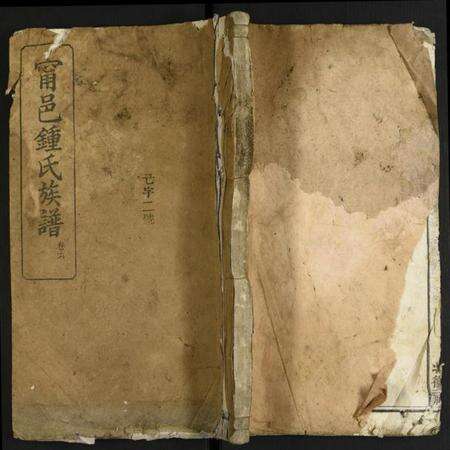 甯邑鍾氏族譜
卷六
字二號